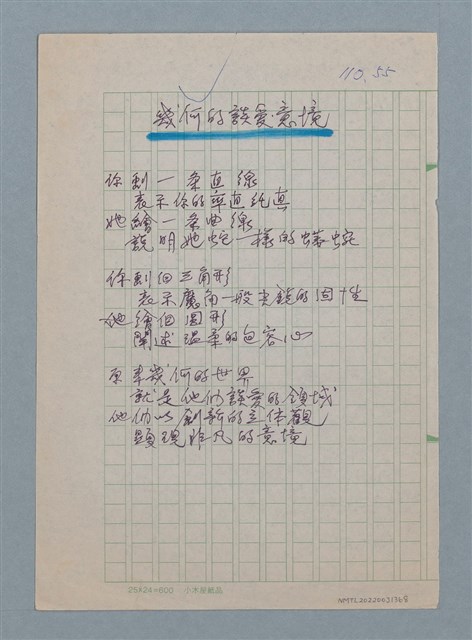 110.55
幾何的談愛意境
你劃一条直線
表示你的率直純真
她繪一条曲線
說明她蛇一樣的蜷蜿
你劃個三角形
表示魔角一般尖銳的個性
她繪個圓形
闡述溫柔的包容心
原來幾何的世界
就是他們談愛的領域
他們以創新的立体觀
顯現非凡的意境
25×24=600 小木屋紙品
NMTL20220031368